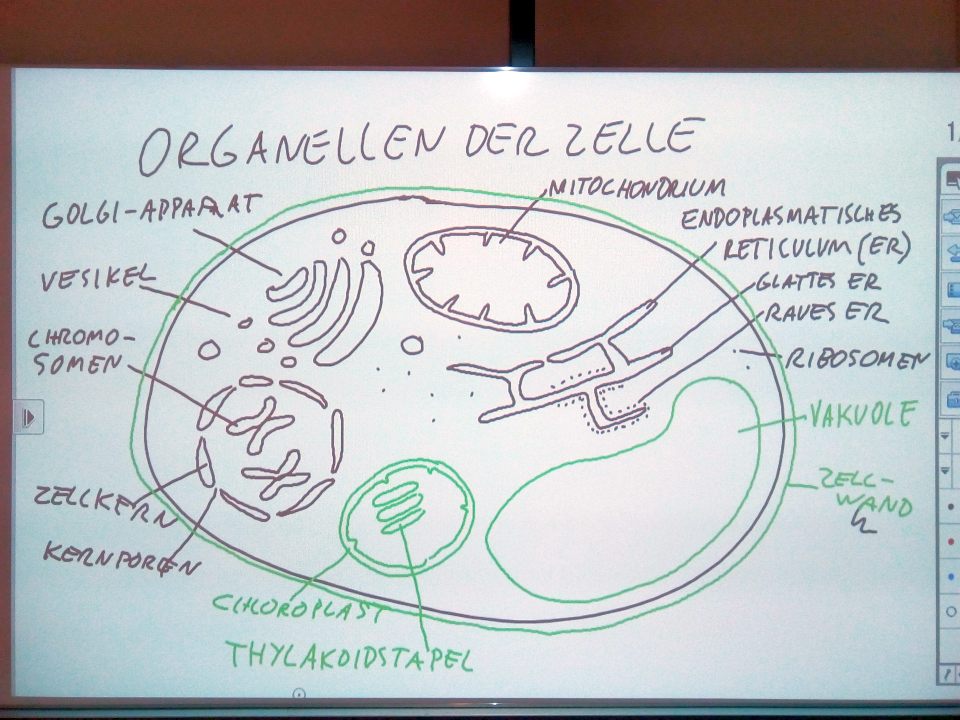 ORGANELLEN DER ZELLE
MITOCHONDRIUM
GOLGI-APPARAT
ENDOPLASMATISCHES
RETICULUM (ER)
VESIKEL
GLATTES ER
RAUES ER
CHROMO-
SOMEN
RIBOSOMEN
VAKUOLE
ZELL-
WAND
ZELLKERN
KERNPOREN
CHLOROPLAST
THYLAKOIDSTAPEL